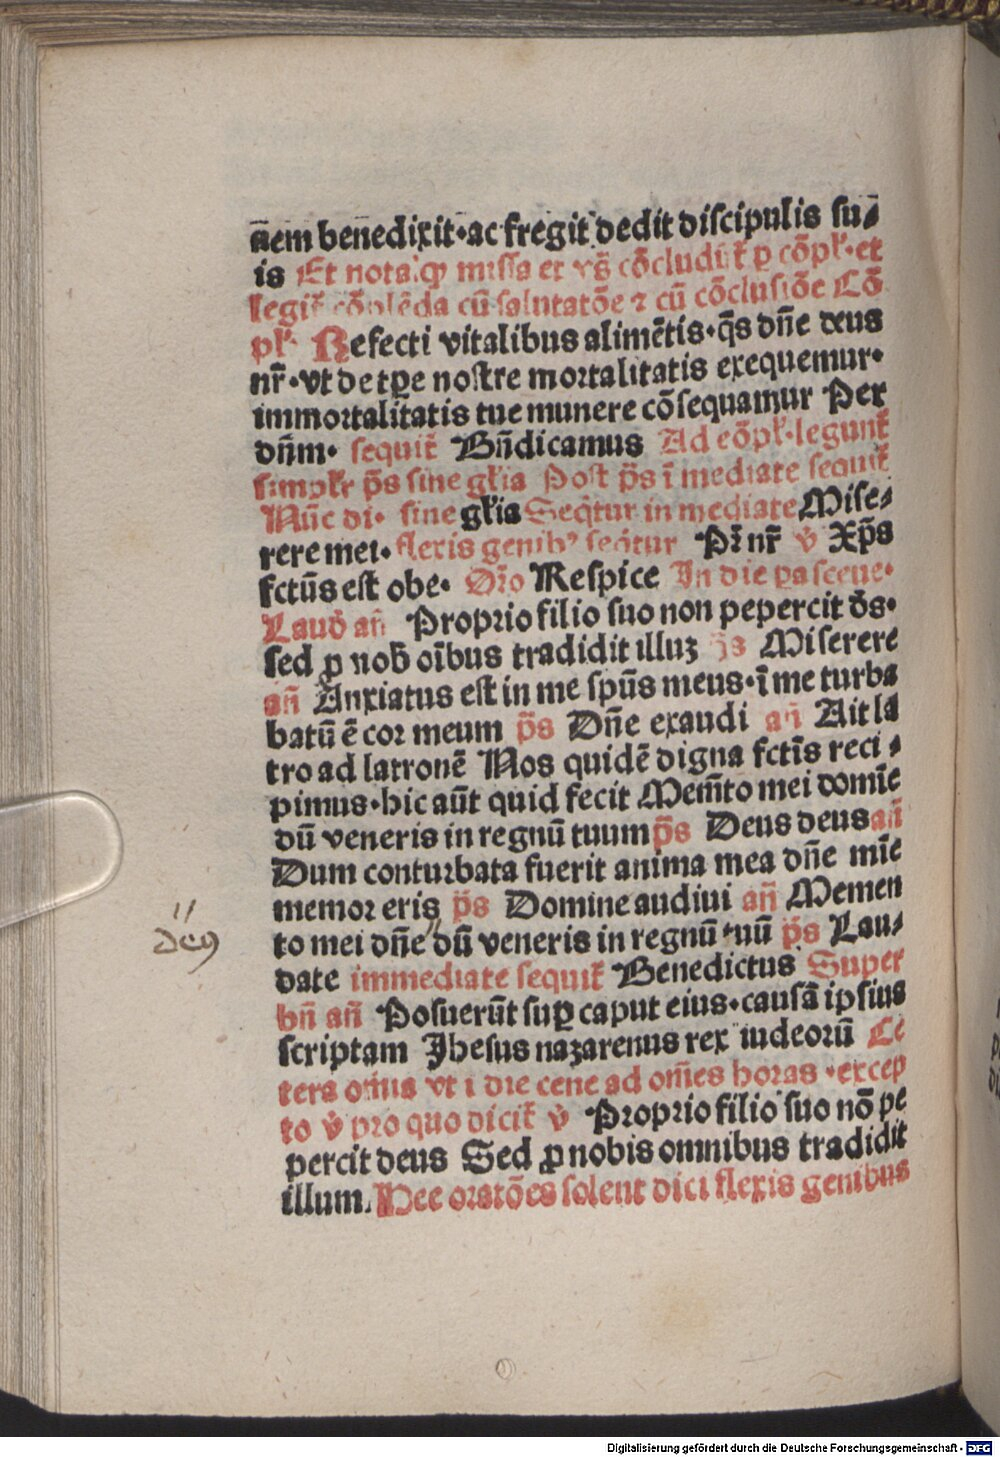 n̄em benedixit·ac fregit dedit discipulis su⸗
is Et nota ꝙ missa et vs̄ cōcludit᷑ ꝑ cōpl᷑·et
legit᷑ cōplēda cū salutatōe ⁊ cū cōclusiōe Cō
pl᷑· Refecti vitalibus alimētis·q̄s dn̄e deus
nr̄·vt de tp̄e nostre mortalitatis exequemur·
immortalitatis tue munere cōsequamur Per
dn̄m· sequit᷑ Bn̄dicamus Ad cōpl᷑·legunt᷑
simpl᷑r p̄s sine gl᷑ia Post p̄s ī mediate sequit᷑
Nūc di· sine gl᷑ia Seq̄tur in mediate Mise⸗
rere mei· flexis genibꝰ seq̄tur Pr̄ nr̄ v̄ Xp̄s
fctūs est obe· Or̄o Respice In die parasceue·
Laud̄ an̄ Proprio filio suo non pepercit d̄s·
sed ꝓ nob̄ oībus tradidit illuꝫ p̄s Miserere
an̄ Anxiatus est in me sp̄us meus·ī me turba
batū ē cor meum p̄s Dn̄e exaudi an̄ Ait la
tro ad latronē Nos quidē digna fctīs reci⸗
pimus·hic aūt quid fecit Mem̄to mei domīe
dū veneris in regnū tuum p̄s Deus deus an̄
Dum conturbata fuerit anima mea dn̄e mīe
memor eris p̄s Domine audiui an̄ Memen
to mei dn̄e dū veneris in regnū tuū p̄s Lau⸗
date immediate sequit᷑ Benedictus Super
bn̄ an̄ Posuerūt suꝑ caput eius·causā ipsius
scriptam Jhesus nazarenus rex iudeorū Ce
tera om̄ia vt ī die cene ad om̄es horas·excep
to v̄ pro quo dicit᷑ v̄ Proprio filio suo nō pe
percit deus Sed ꝓ nobis omnibus tradidit
illum. Hee oratōes solent dici flexis genibus
Digitalisierung gefördert durch die Deutsche Forschungsgemeinschaft - DFG